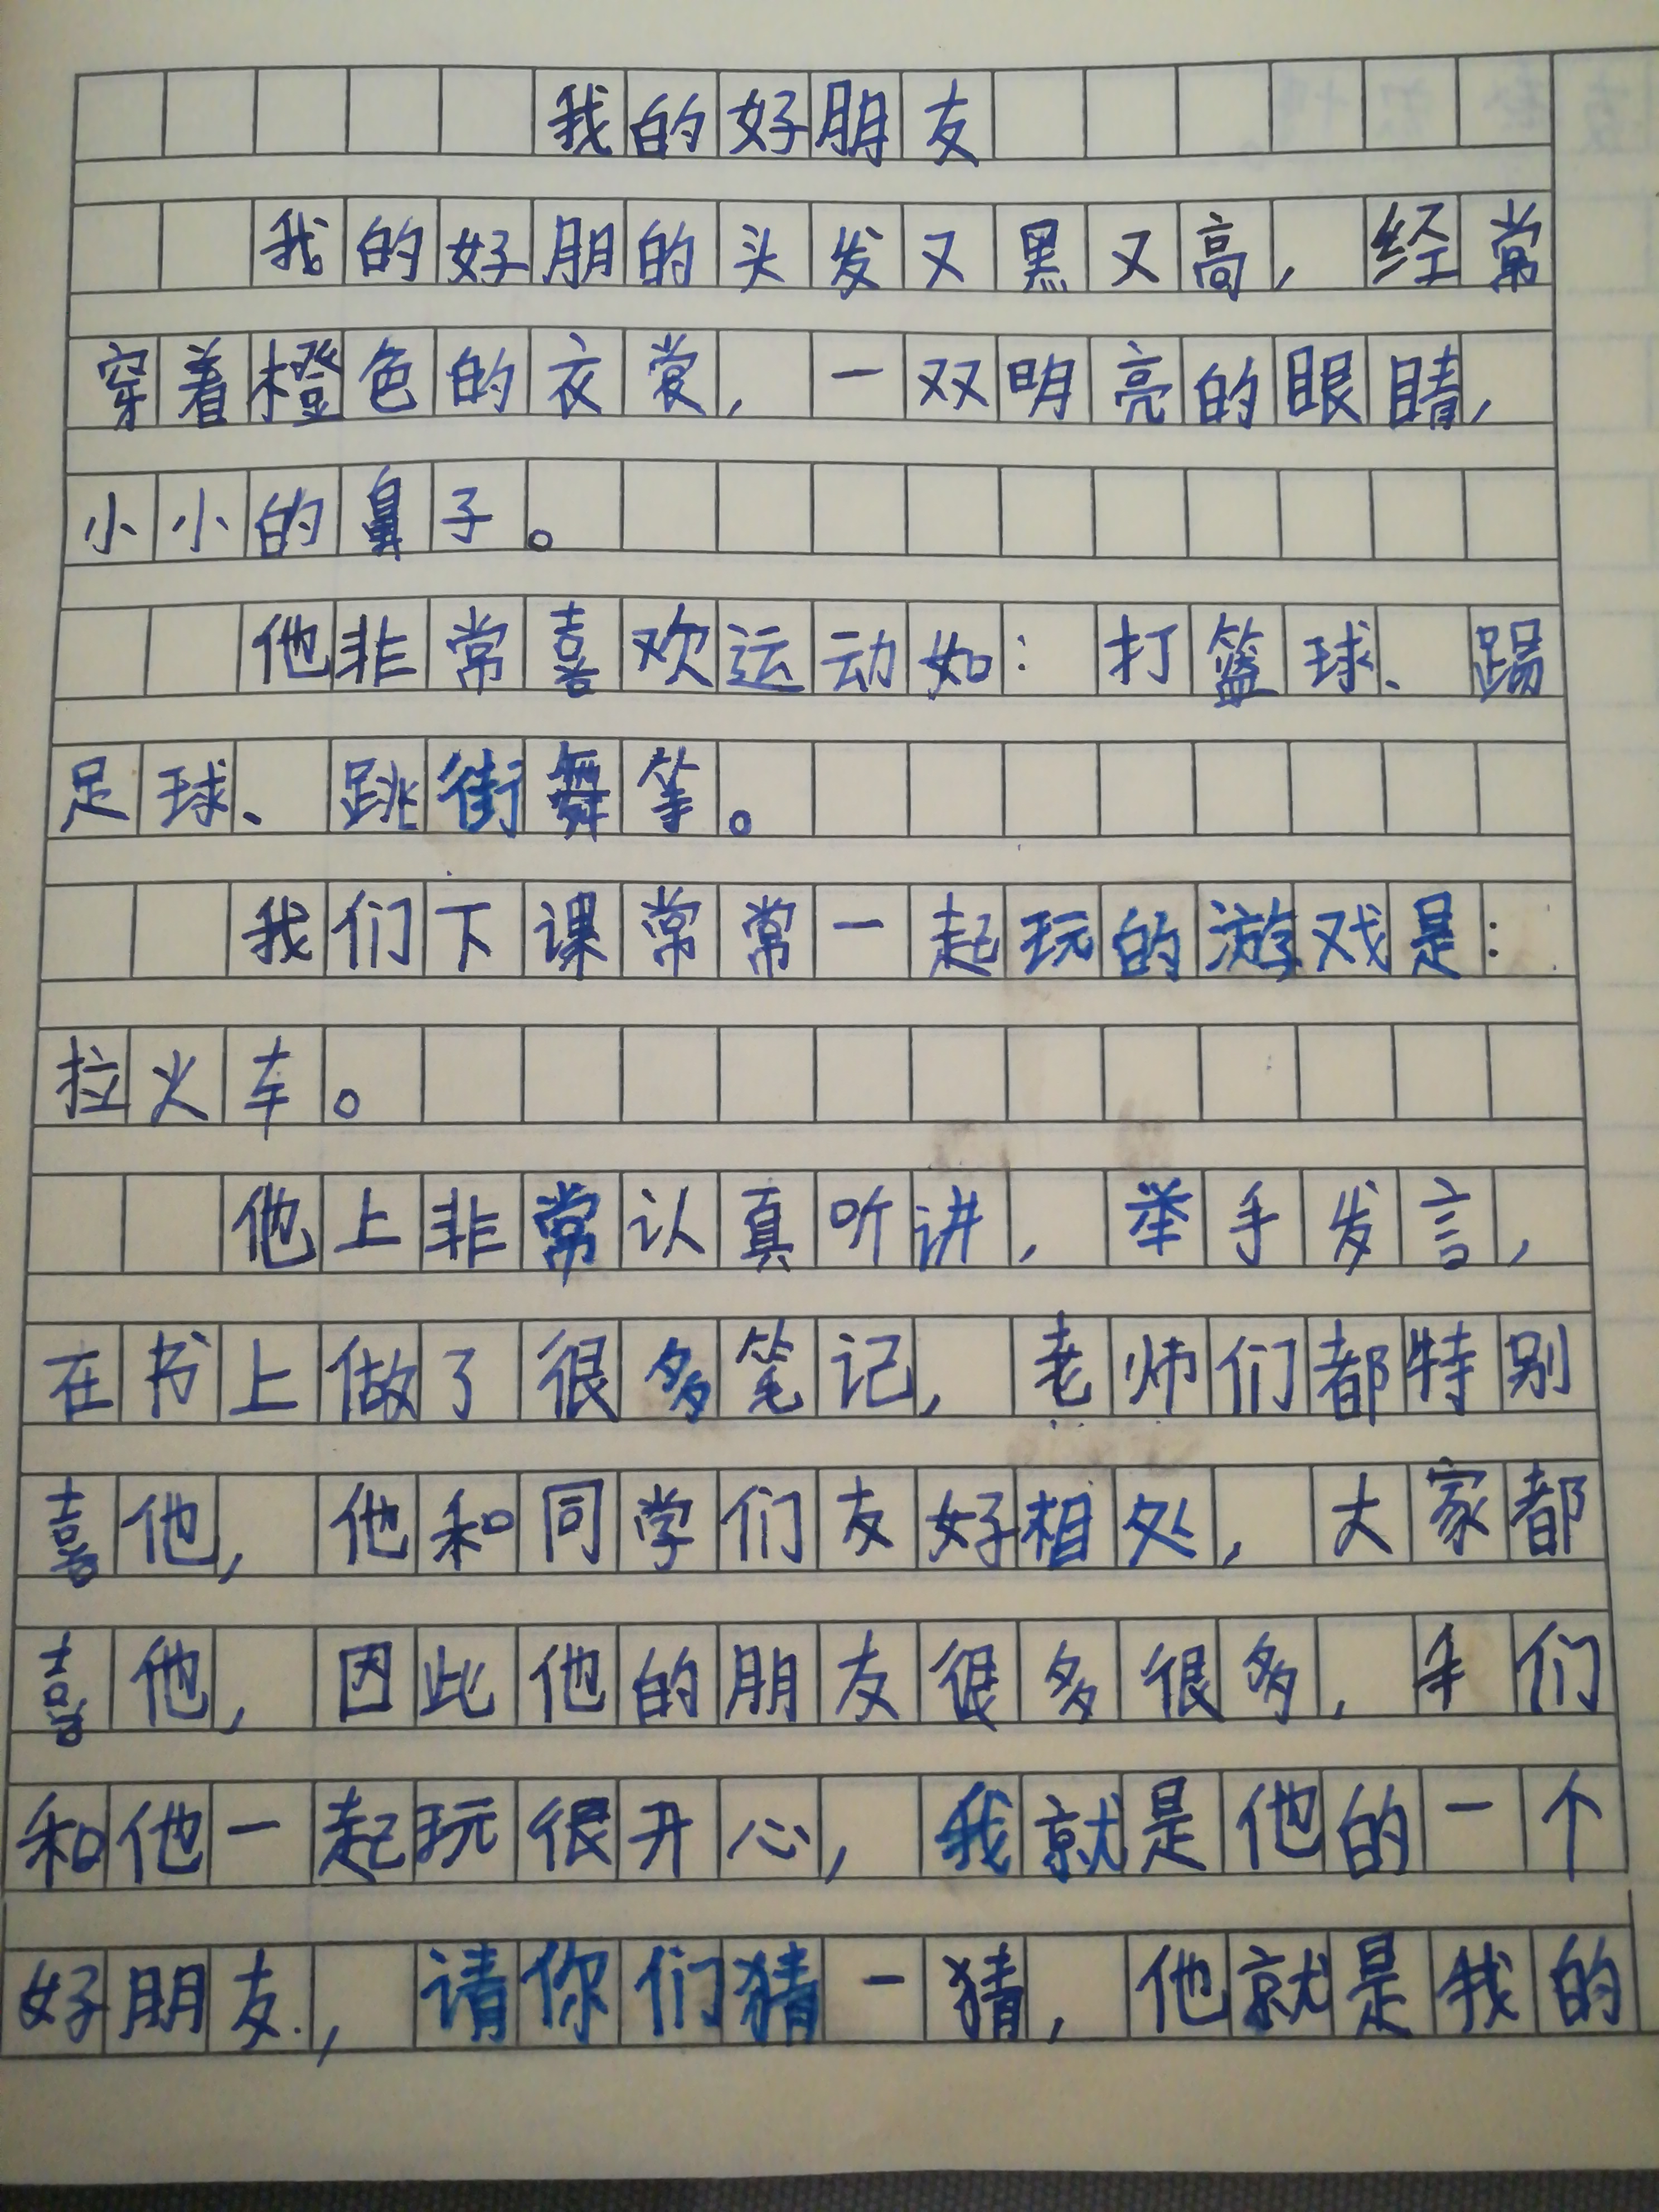 我的好朋友
我的好朋的头发又黑又高，经常
穿着橙色的衣裳，一双明亮的眼睛，
小小的鼻子。
他非常喜欢运动如：打篮球、踢
足球、跳街舞等。
我们下课常常一起玩的游戏是：
拉火车。
他上非常认真听讲，举手发言，
在书上做了很多笔记，老师们都特别
喜他，他和同学们友好相处，大家都
喜他，因此他的朋友很多很多，们
和他一起玩很开心，我就是他的一个
好朋友，请你们猜一猜，他就是我的